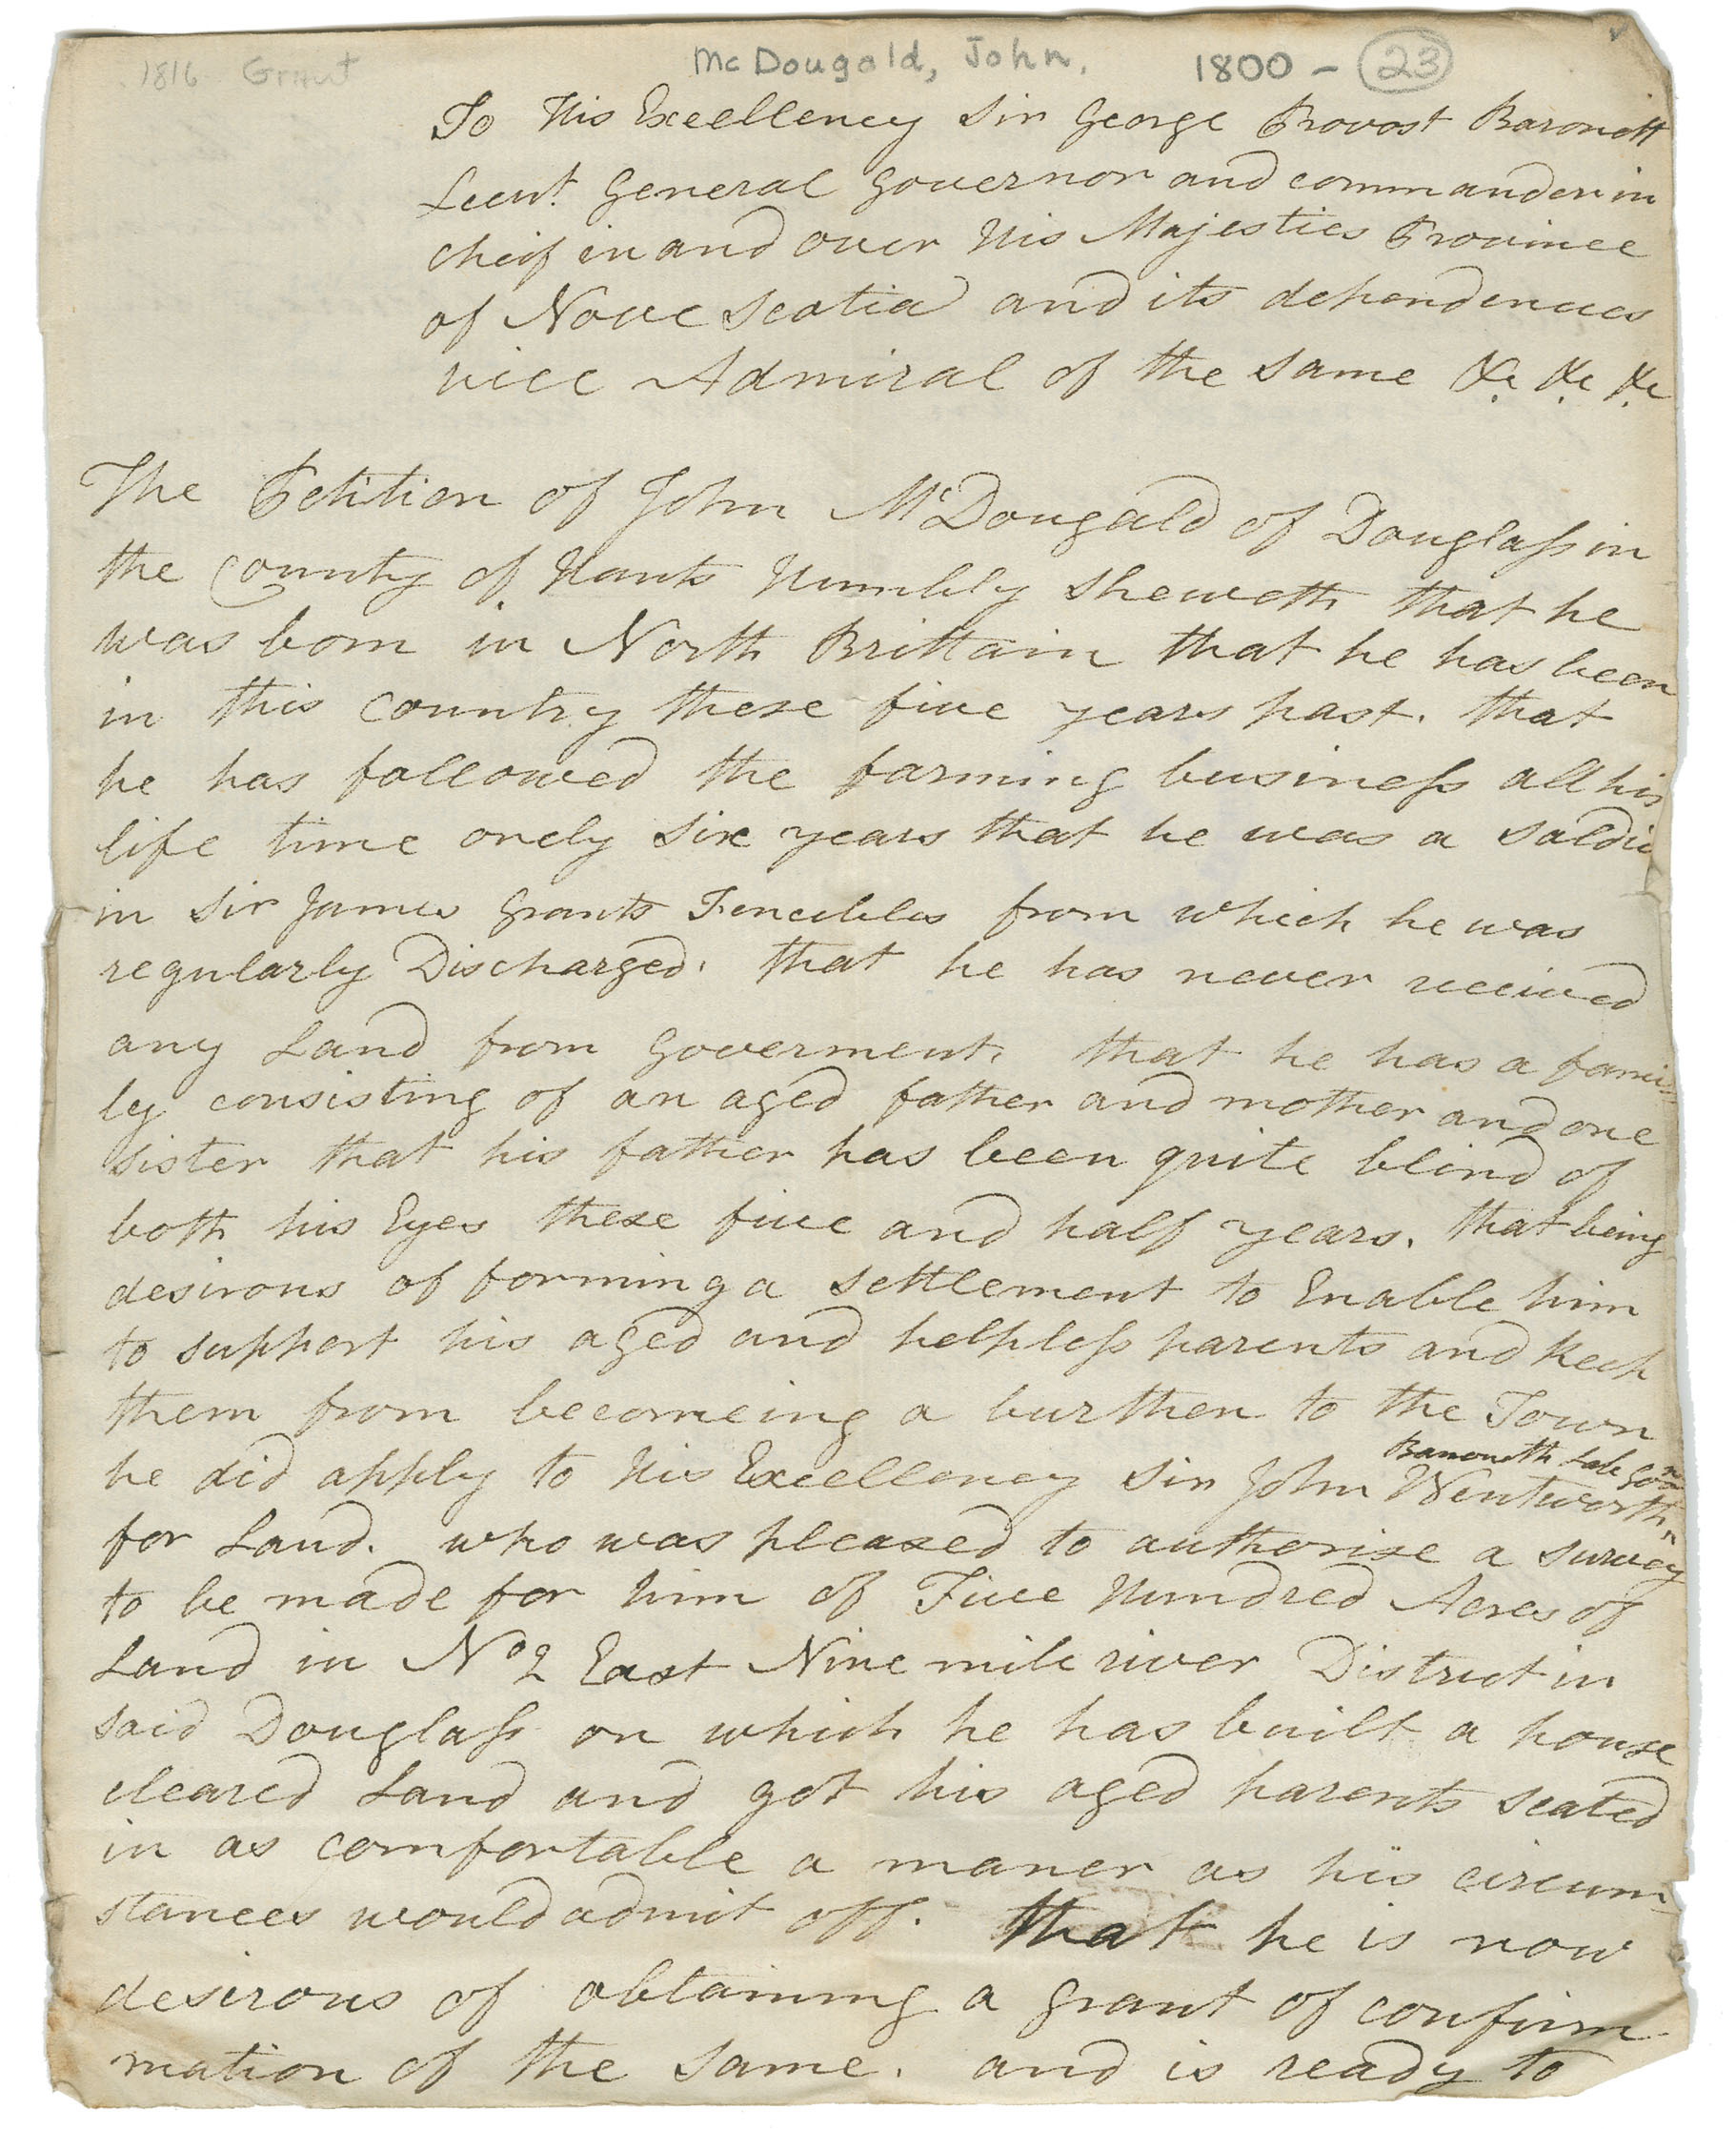 1816 Grant
McDougald, John. 1800 - 23
To His Excellency Sir George Provost Baronett
Lieut. General Governor and commander in
cheif in and over His Majesties Province
of Nove Scotia and its dependences
vice Admiral of the same &c. &c. &c.
The Petition of John McDougald of Douglass in
the County of Hants Humbly Sheweth that he
was born in North Brittain that he has been
in this Country these five years past. that
he has followed the farming business all his
life time onely six years that he was a soldie
in Sir James Grants Fencibles from which he was
regularly Discharged. that he has never received
any Land from Goverment. that he has a fami
ly consisting of an aged father and mother and one
sister that his father has been quite blind of
both his Eyes these five and half years. that being
desirous of forming a settlement to Enable him
to support his aged and helpless parents and keep
them from becomeing a burthen to the Town
he did apply to His Excellency Sir John Wentworth
Baronett Late Govr
for Land. who was pleased to authorise a survey
to be made for him of Five Hundred Acres of
Land in No 2 East Nine mile river District in
said Douglass on which he has built a house
cleared Land and got his aged parents seated
in as comfortable a maner as his circum
stances would admit off. that he is now
desirous of obtaining a grant of confirm
mation of the same. and is ready to